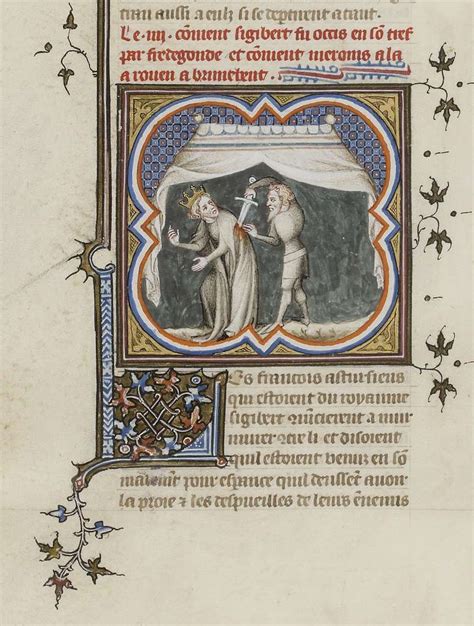 trau aussi a eulz si se deptirent a tant.
Le .iiii. coment sigibert fu occis en so tref
par fredegonde et coment meroueus ala
a rouen a brunehent.
Es francois asturieus
qui estoient du royaume
sigibert
li et disoient
quil estoient venuz en so
pour esperance quil deussent auoir
la proie & les despueilles de leurs enemis